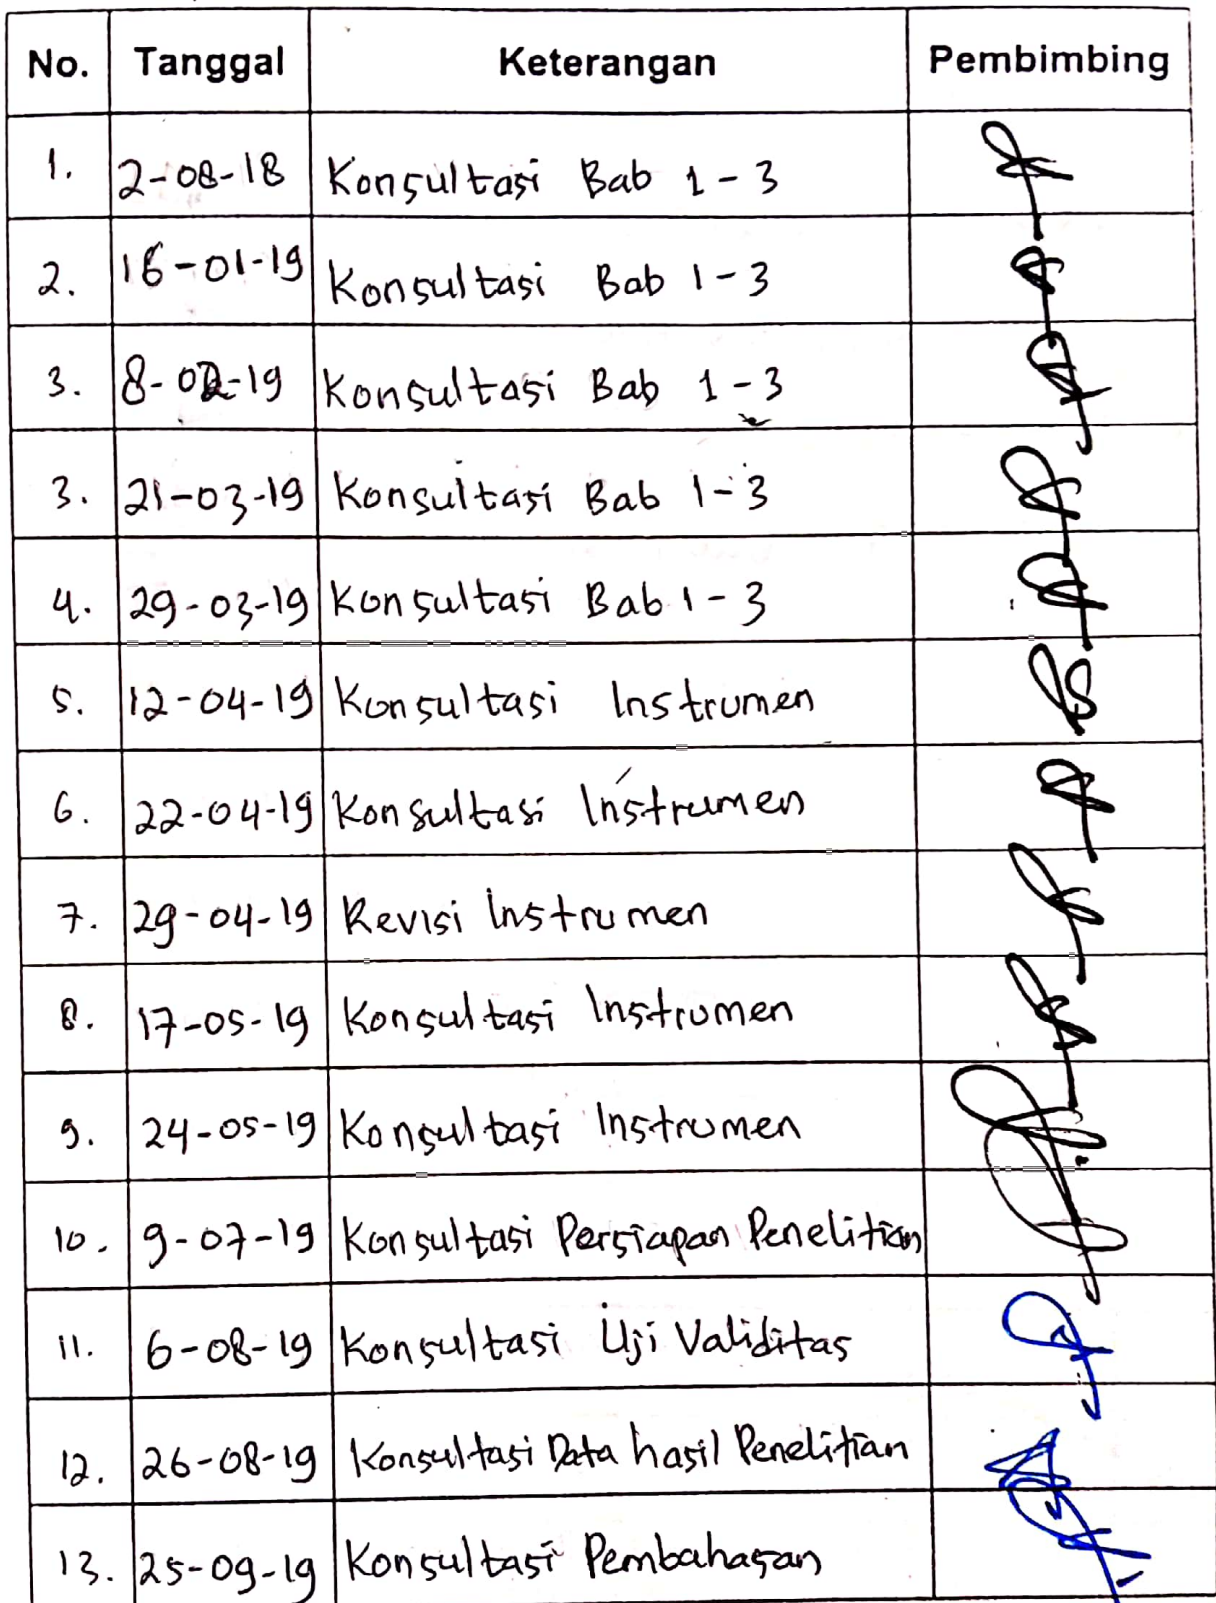 No. Tanggal Keterangan Pembimbing
1. 2-08-18 Konsultasi Bab 1-3
2. 16-01-19 Konsultasi Bab 1-3
3. 8-02-19 Konsultasi Bab 1-3
3. 21-03-19 Konsultasi Bab 1-3
4. 29-03-19 Konsultasi Bab 1-3
5. 12-04-19 Konsultasi Instrumen
6. 22-04-19 Konsultasi Instrumen
7. 29-04-19 Revisi Instrumen
8. 17-05-19 Konsultasi Instrumen
9. 24-05-19 Konsultasi Instrumen
10. 9-07-19 Konsultasi Persiapan Penelitian
11. 6-08-19 Konsultasi Uji Validitas
12. 26-08-19 Konsultasi Data hasil Penelitian
13. 25-09-19 Konsultasi Pembahasan